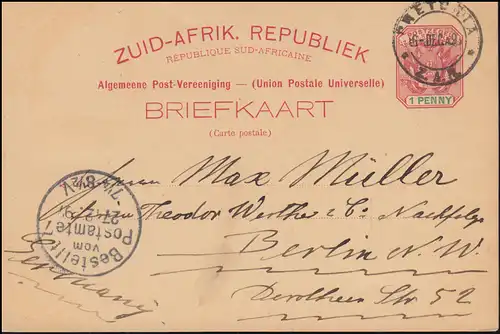 ZUID-AFRIK. REPUBLIEK
RÉPUBLIQUE SUD-AFRICAINE
Algemeene Post-Vereeniging — (Union Postale Universelle)
BRIEFKAART
(Carte postale)
PRETORIA
Z.A.R.
1 PENNY
Herrn Max Müller
Theodor Werther & Co. Nachfolger
Berlin N. W.
Dorotheen Str. 52
Germany
Bestellt
vom
Postamte 7